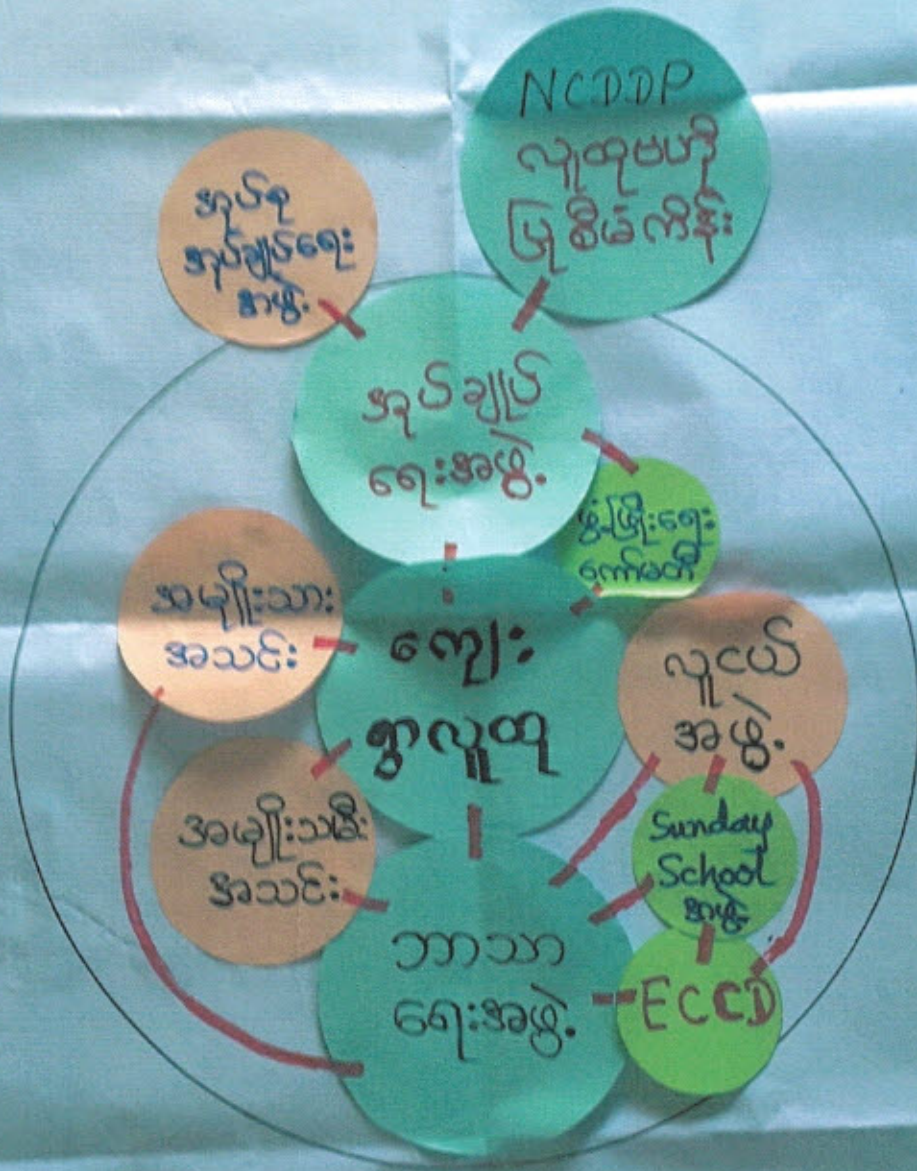 NCDDP
လူထုဗဟို
ပြုစီမံကိန်း
အုပ်စု
အုပ်ချုပ်ရေး
အဖွဲ့
အုပ်ချုပ်
ရေးအဖွဲ့
ဖွံ့ဖြိုးရေး
ကော်မတီ
အမျိုးသား
အသင်း
ကျေး
ရွာလူထု
လူငယ်
အဖွဲ့
အမျိုးသမီး
အသင်း
Sunday
School
အဖွဲ့
ဘာသာ
ရေးအဖွဲ့
ECCD